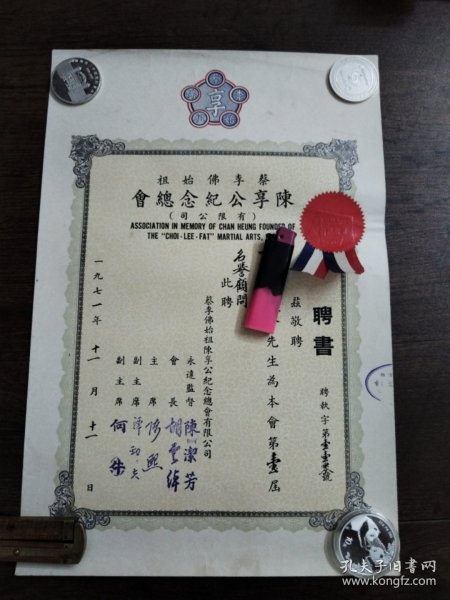 享
祖始佛李蔡
會總念紀公享陳
（司公限有）
ASSOCIATION IN MEMORY OF CHAN HEUNG FOUNDER OF
THE "CHOI-LEE-FAT" MARTIAL ARTS,
聘書
聘執字第壹壹號
茲敬聘
先生為本會第壹屆
名譽顧問
此聘
蔡李佛始祖陳享公紀念總會有限公司
永遠監督 陳潔芳
會長 胡雲綽
主席
副主席
副主席
一九七一年十一月十一日
孔夫子旧书网
www.kongfz.com